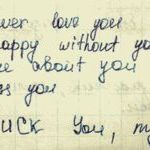 ver love you
happy without yo
e about you
s you
UCK You, my